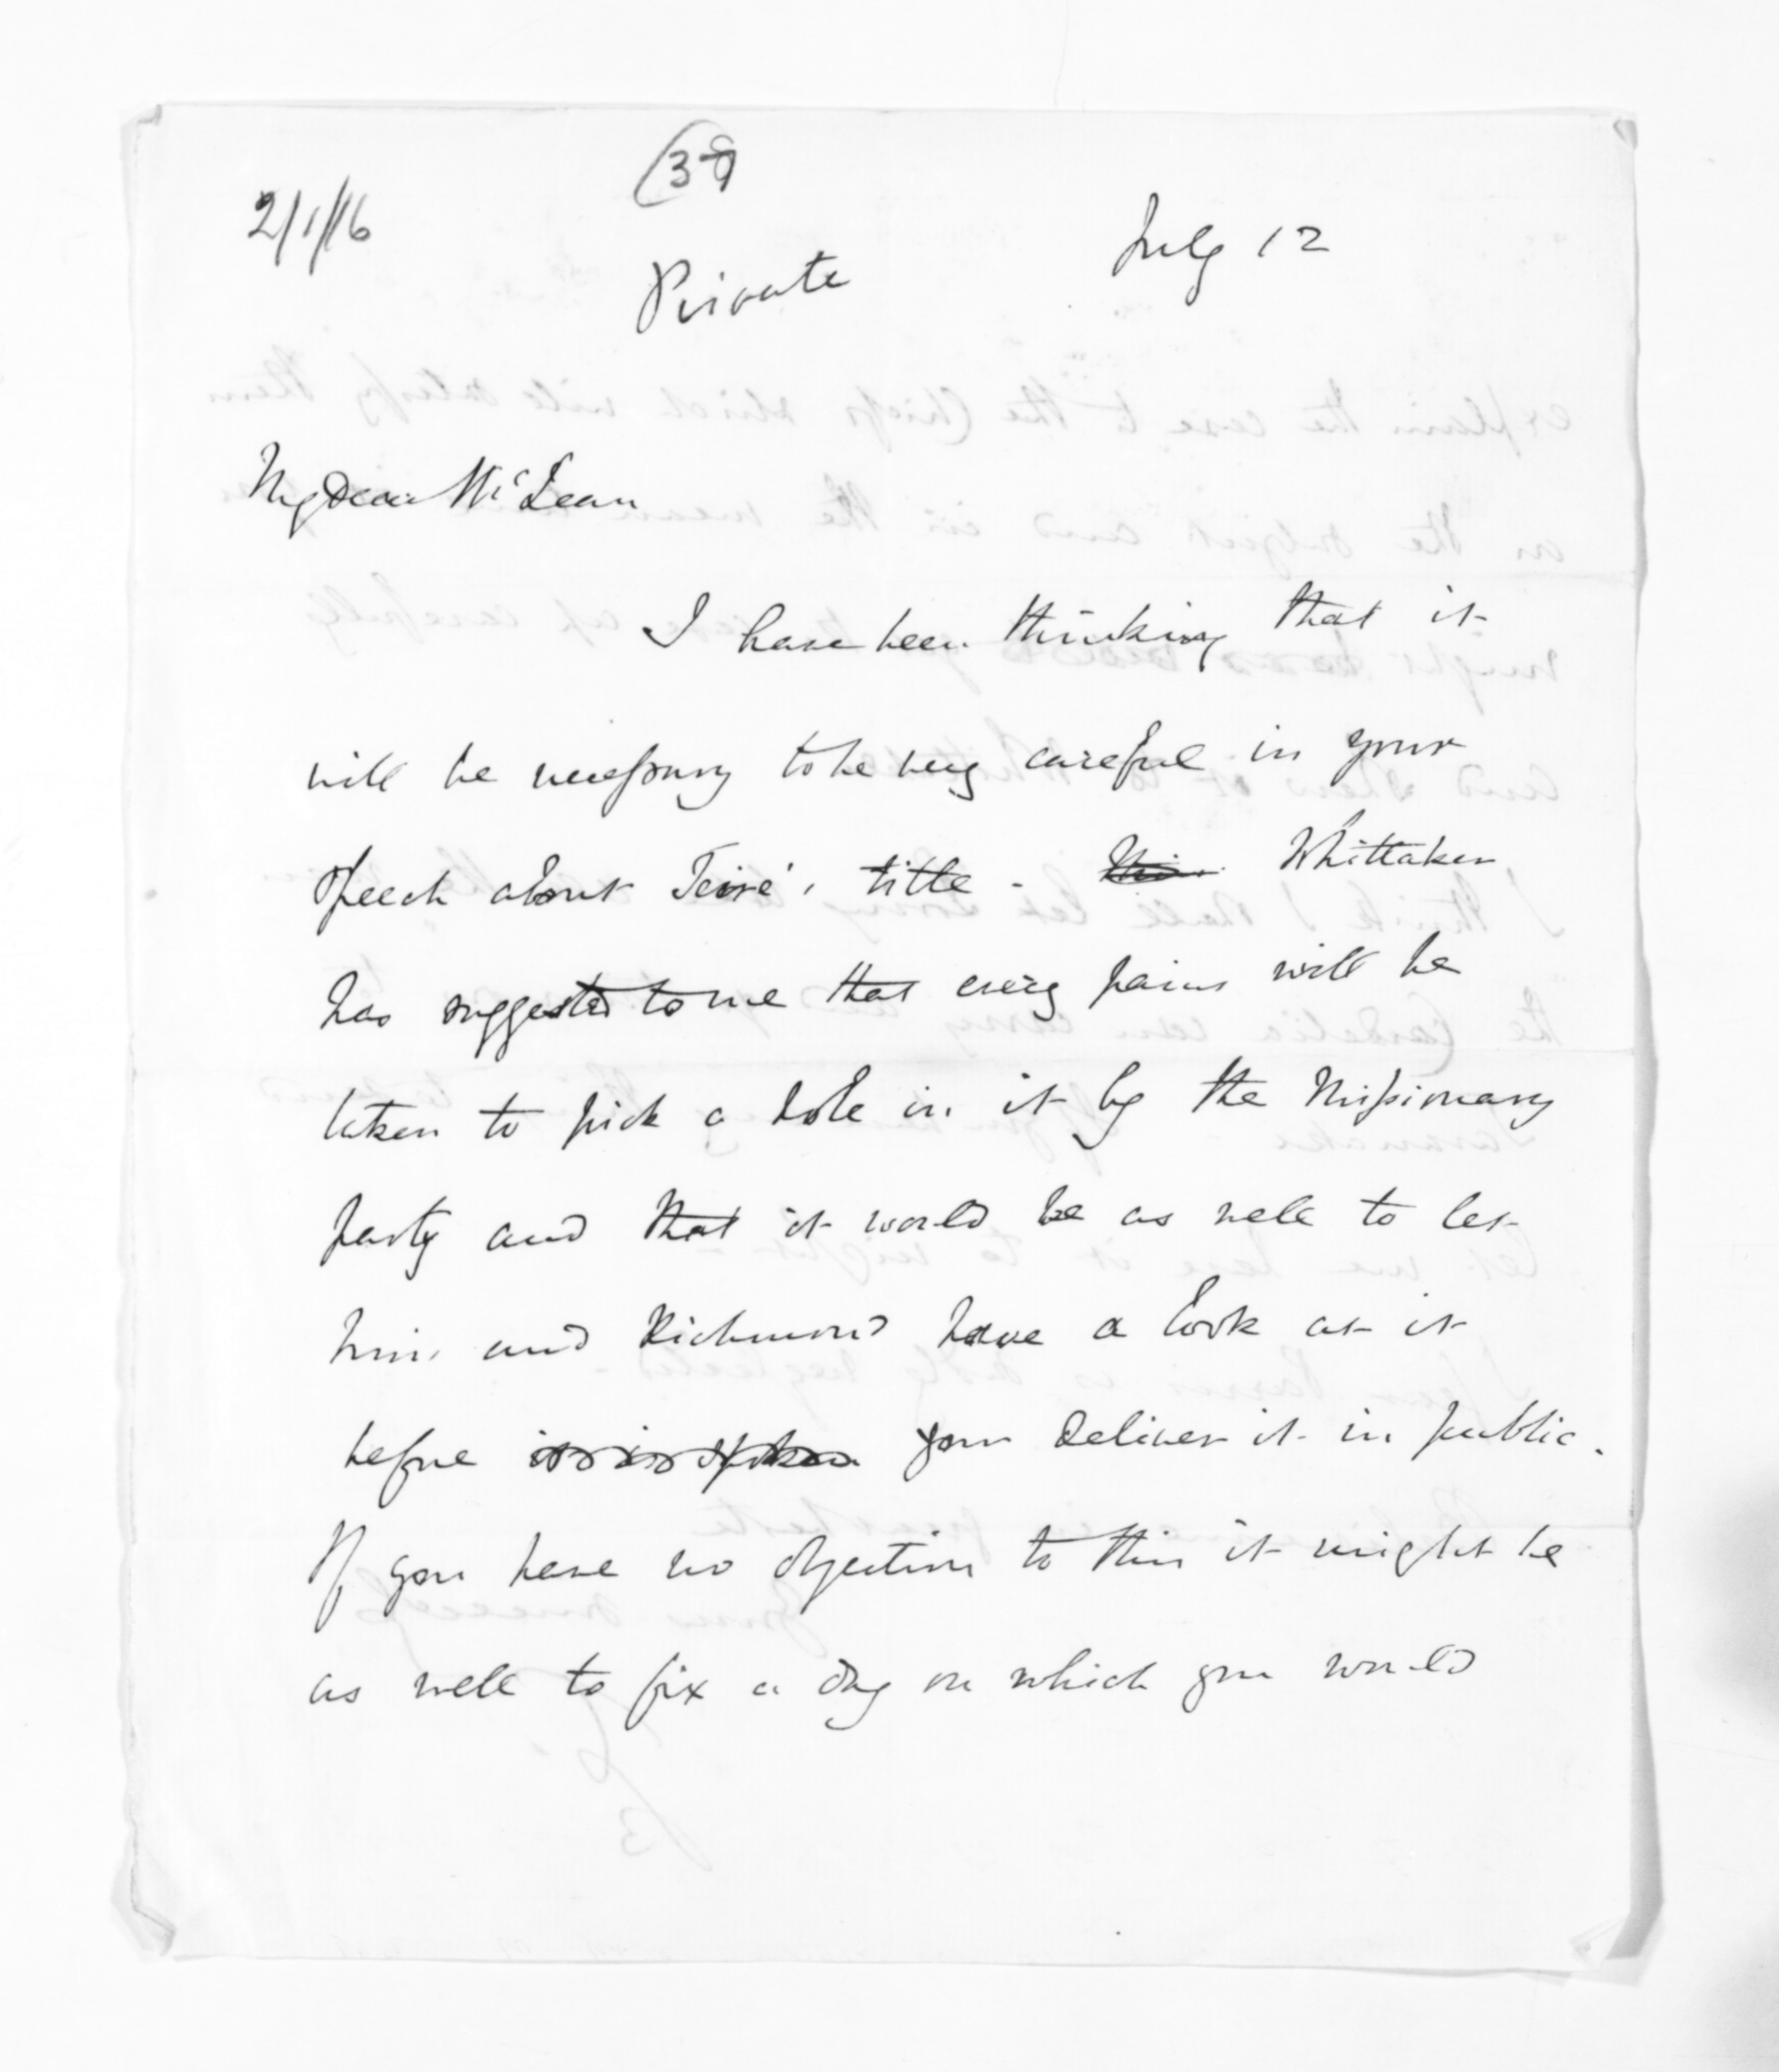 (39
2/1/16
July 12
Private
My Dear McLean
I have been thinking that it
will be necessary to be very careful in your
speech about Teira's title - Whittaker
has suggested to me that every pains will be
taken to pick a hole in it by the Missionary
party and that it would be as well to let
him and Richmond have a look at it
before you deliver it in public.
If you have no objection to this it might be
as well to fix a day on which you would